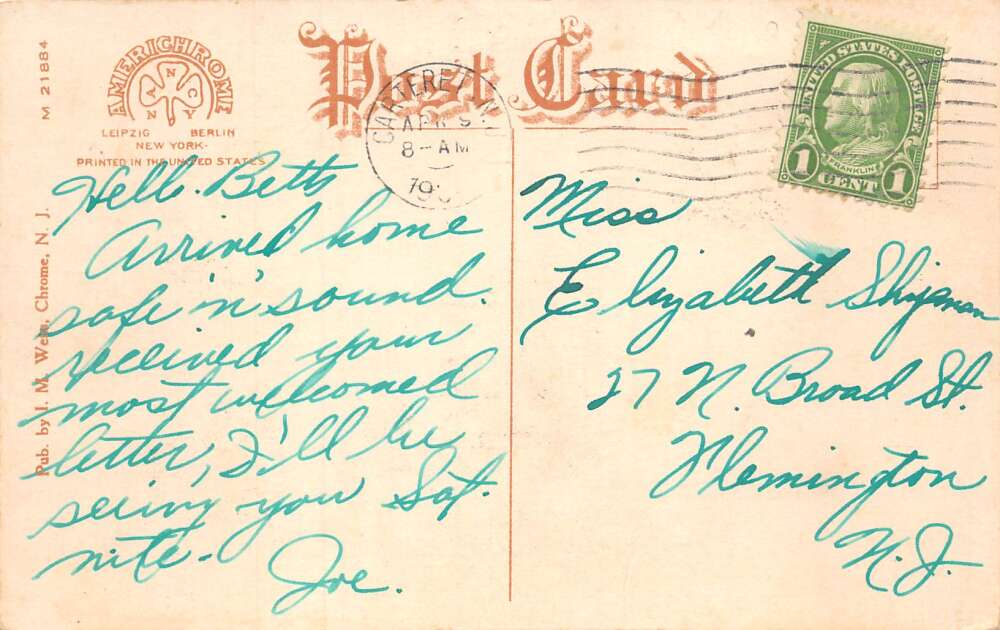 M 21884
AMERICHROME
A N N C N Y
LEIPZIG BERLIN
NEW YORK.
PRINTED IN THE UNITED STATES
Post Card
CARTERET N.J.
APR 9
8-AM
UNITED STATES POSTAGE
FRANKLIN
1 CENT 1
Pub. by I. M. Chrome, N. J.
Hello Betts
Arrived home
safe 'n' sound.
received your
most welcomed
letter, I'll be
seeing you Sat.
nite-
Joe.
Miss
Elizabeth Shipman
27 N. Broad St.
Flemington
N.J.